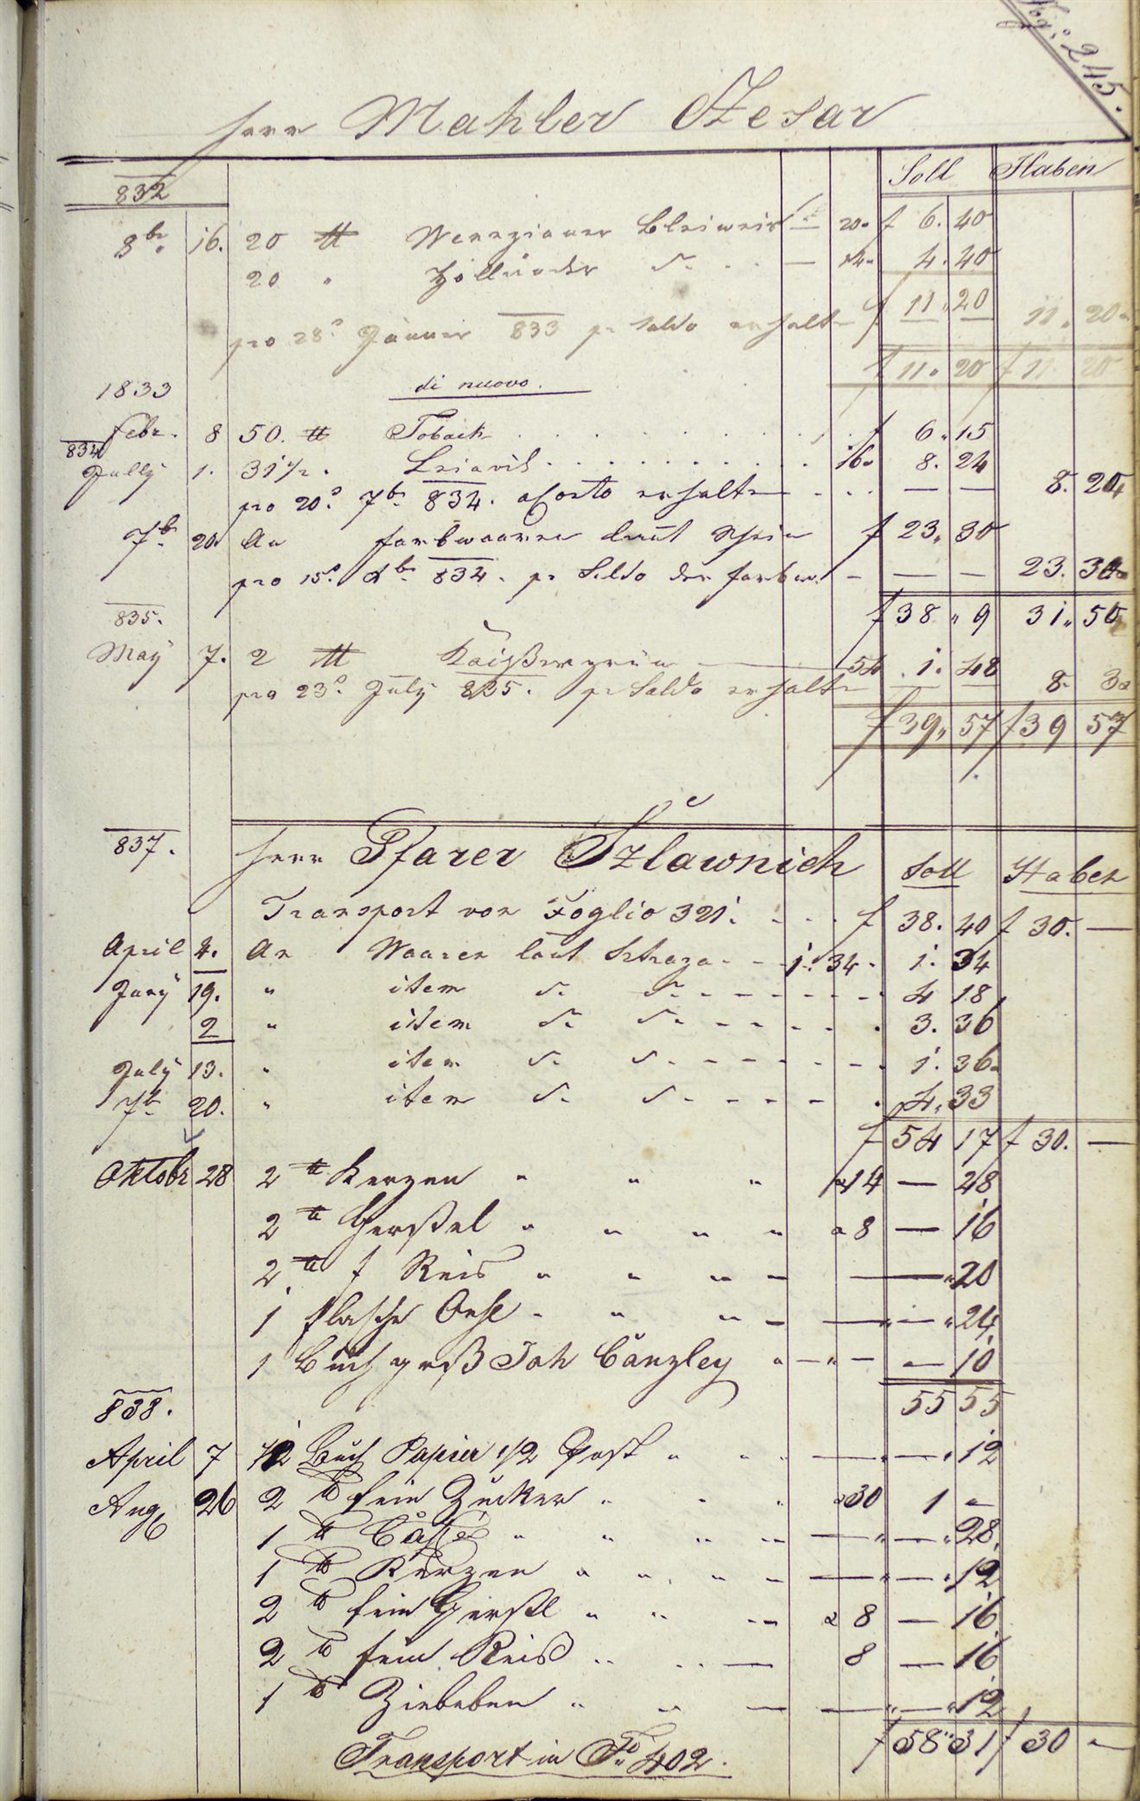 Fog: 245.
Herr Mahler Szesar
Soll Haben
832
8br 16. 20 ℔ Venezianer Bleiweis 20 f 6. 40
20 " Holländer d. 14 4. 40
f 11. 20
pro 28. Jänner 833 pr Saldo erhalten 11. 20
f 11. 20 f 11. 20
1833 di nuovo.
Febr. 8 50. ℔ Toback f 6. 15
834
July 1. 31½ . 16 8. 24
pro 20. 7br 834. a Conto erhalten — — 8. 20
7br 20. An Farbwaaren laut Schein f 23. 30
pro 15. 834. pr Saldo der Farbw. — — — 23. 30
f 38. 9 31. 50
835.
May 7. 2 ℔ Kaisergrün 54 1. 48
pro 23. July 835. pr Saldo erhalten 8.
f 39. 57 f 39 57
837. Herr Pfarer Szlawnich Soll Haben
Transport von Foglio 321. f 38. 40 f 30. —
April 4. An Waaren laut Straza 1. 34. 1. 34
Juny 19. " item d. d. 4 18
2 " item d. d. 3. 36
July 13. " item d. d. 1. 36
7br 20. " item d. d. 4. 33
f 54 17 f 30. —
Oktobr 28 2 ℔ Kerzen " " " a 14 — 28
2 ℔ Gerstel " " " " a 8 — 16
2 ℔ f Reis " " " — — 20
1 flasche Oehl " " " — — 24
1 Buch groß Joh Canzley " — " — — 10
55 55
838.
April 7 ½ Buch Papier 1/2 Post " " " — — 12
Aug 26 2 ℔ fein Zucker " " " a 30 1 —
1 ℔ Caffé " " " " — — 28
1 ℔ Kerzen " " " — — — 12
2 ℔ fein Gerstl " " " a 8 — 16
2 ℔ fein Reis " " — 8 — 16
1 ℔ Ziebeben " " — — — 12
f 58 31 f 30 —
Transport in Fo 402.